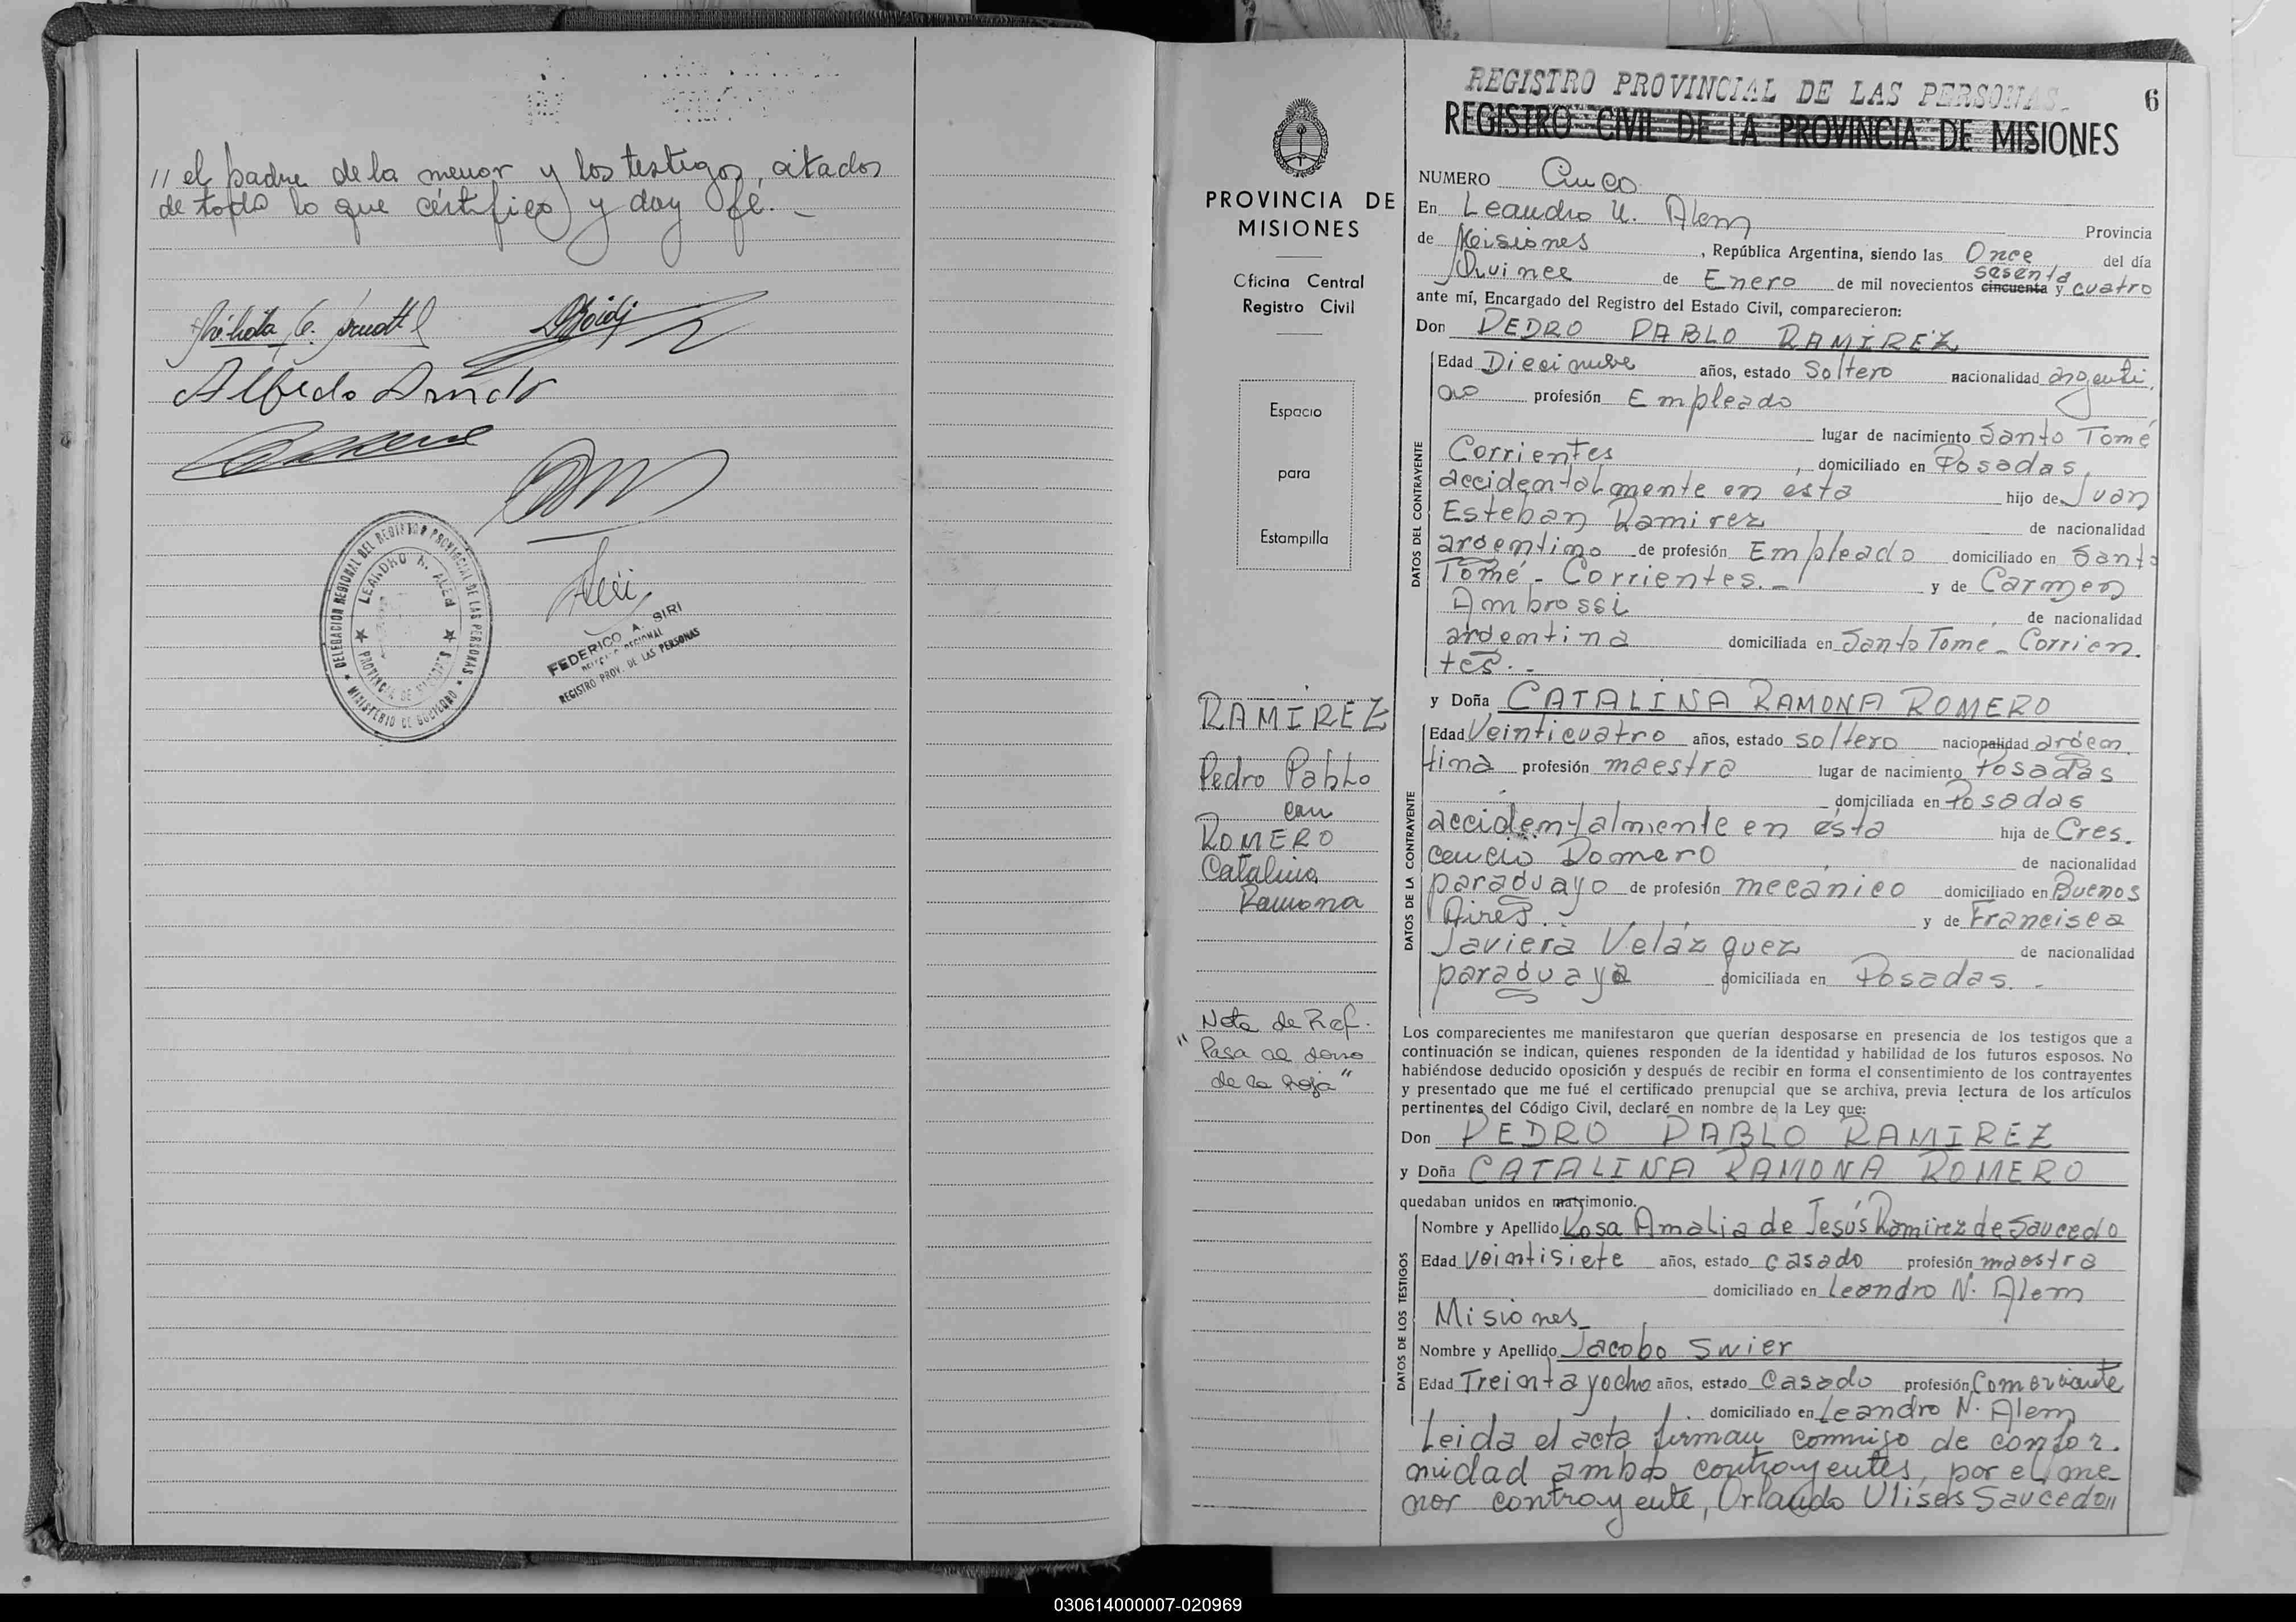 // el padre de la menor y los testigos, citados
de todo lo que certifico y doy fé. _
Alfredo Arndt
DELEGACION REGIONAL DEL REGISTRO PROVINCIAL DE LAS PERSONAS
LEANDRO N. ALEM
PROVINCIA DE MISIONES
MINISTERIO DE GOBIERNO
FEDERICO A. SIRI
DELEGADO REGIONAL
REGISTRO PROV. DE LAS PERSONAS
PROVINCIA DE
MISIONES
Oficina Central
Registro Civil
Espacio
para
Estampilla
RAMIREZ
Pedro Pablo
con
ROMERO
Catalina
Ramona
Nota de Ref.
"Pasa al dorso
de la hoja"
REGISTRO PROVINCIAL DE LAS PERSONAS.
6
REGISTRO CIVIL DE LA PROVINCIA DE MISIONES
NUMERO Cinco
En Leandro N. Alem Provincia
de Misiones, República Argentina, siendo las Once del día
Quince de Enero de mil novecientos cincuenta sesenta y cuatro
ante mí, Encargado del Registro del Estado Civil, comparecieron:
Don PEDRO PABLO RAMIREZ
DATOS DEL CONTRAYENTE
Edad Diecinueve años, estado Soltero nacionalidad argenti.
no profesión Empleado
lugar de nacimiento Santo Tomé
Corrientes, domiciliado en Posadas,
accidentalmente en esta hijo de Juan
Esteban Ramirez de nacionalidad
argentino de profesión Empleado domiciliado en Santo
Tomé - Corrientes. - y de Carmen
Ambrossi, de nacionalidad
argentina domiciliada en Santo Tome - Corrien.
tes. -
y Doña CATALINA RAMONA ROMERO
DATOS DE LA CONTRAYENTE
Edad Veinticuatro años, estado soltero nacionalidad argen.
tina profesión maestra lugar de nacimiento Posadas
domiciliada en Posadas
accidentalmente en ésta hija de Cres.
cencio Romero, de nacionalidad
paraguayo de profesión mecánico domiciliado en Buenos
Aires. y de Francisca
Javiera Velázquez de nacionalidad
paraguaya domiciliada en Posadas. -
Los comparecientes me manifestaron que querían desposarse en presencia de los testigos que a
continuación se indican, quienes responden de la identidad y habilidad de los futuros esposos. No
habiéndose deducido oposición y después de recibir en forma el consentimiento de los contrayentes
y presentado que me fué el certificado prenupcial que se archiva, previa lectura de los artículos
pertinentes del Código Civil, declaré en nombre de la Ley que:
Don PEDRO PABLO RAMIREZ
y Doña CATALINA RAMONA ROMERO
quedaban unidos en matrimonio.
DATOS DE LOS TESTIGOS
Nombre y Apellido Rosa Amalia de Jesús Ramirez de Saucedo
Edad veintisiete años, estado casado profesión maestra
domiciliado en Leandro N. Alem
Misiones_
Nombre y Apellido Jacobo Swier
Edad Treinta y ocho años, estado Casado profesión Comerciante
domiciliado en Leandro N. Alem
Leida el acta firman conmigo de confor.
midad ambos contrayentes, por el me-
nor contrayente, Orlando Ulises Saucedo//
030614000007-020969